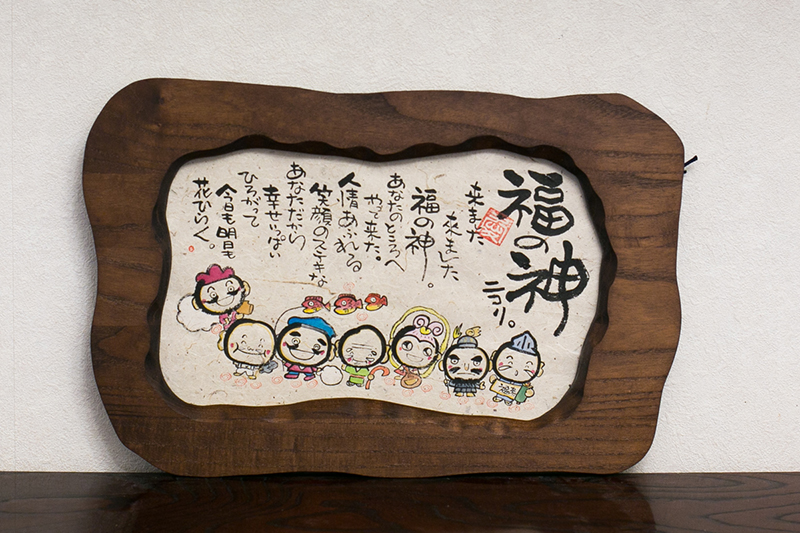 福の神
ニコリ。
来また
来ました
福の神。
あなたのところへ
やって来た。
人情あふれる
笑顔のステキな
あなただから
幸せいっぱい
ひろがって
今日も明日も
花ひらく。